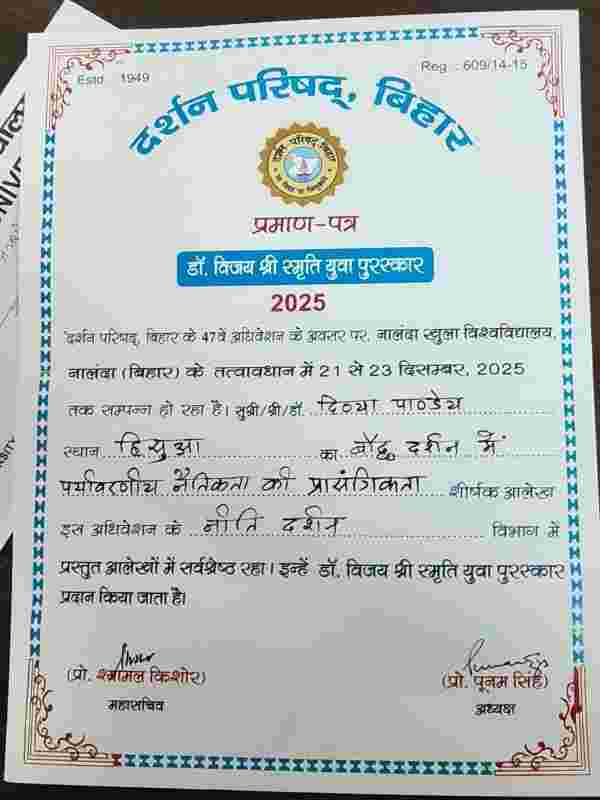 Estd : 1949
Reg : 609/14-15
दर्शन परिषद्, बिहार
दर्शन परिषद्, बिहार
प्रमाण-पत्र
डॉ. विजय श्री स्मृति युवा पुरस्कार
2025
दर्शन परिषद्, बिहार के 47वें अधिवेशन के अवसर पर, नालंदा खुला विश्वविद्यालय,
नालंदा (बिहार) के तत्वावधान में 21 से 23 दिसम्बर, 2025
तक सम्पन्न हो रहा है। सुश्री/श्री/डॉ. दिव्या पाण्डेय
स्थान हिसुआ का बौद्ध दर्शन में
पर्यावरणीय नैतिकता की प्रासंगिकता शीर्षक आलेख
इस अधिवेशन के नीति दर्शन विभाग में
प्रस्तुत आलेखों में सर्वश्रेष्ठ रहा। इन्हें डॉ. विजय श्री स्मृति युवा पुरस्कार
प्रदान किया जाता है।
(प्रो. श्यामल किशोर)
महासचिव
(प्रो. पूनम सिंह)
अध्यक्ष